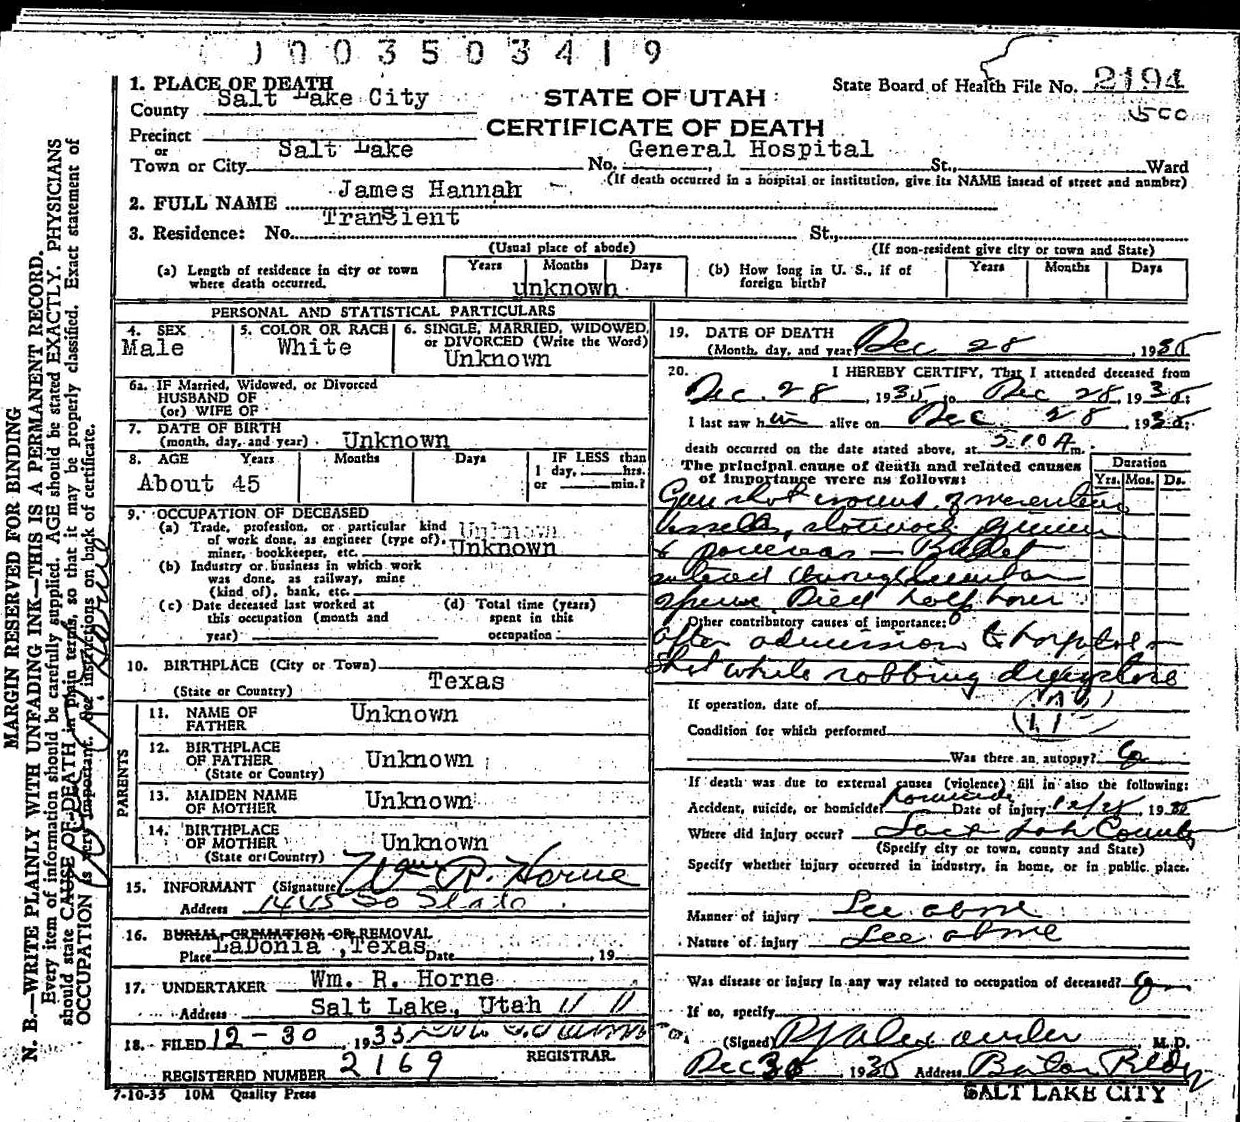 0 0 3 5 0 3 4 1 9
1. PLACE OF DEATH
County Salt Lake City
State Board of Health File No. 2194
STATE OF UTAH
CERTIFICATE OF DEATH
Precinct
or
Town or City Salt Lake No. General Hospital St., Ward
(If death occurred in a hospital or institution, give its NAME instead of street and number)
2. FULL NAME James Hannah
3. Residence: No. Transient St.,
(Usual place of abode) (If non-resident give city or town and State)
(a) Length of residence in city or town where death occurred. Years Months Days unknown
(b) How long in U. S., if of foreign birth? Years Months Days
PERSONAL AND STATISTICAL PARTICULARS
4. SEX Male
5. COLOR OR RACE White
6. SINGLE, MARRIED, WIDOWED, or DIVORCED (Write the Word) Unknown
6a. IF Married, Widowed, or Divorced
HUSBAND OF
(or) WIFE OF
7. DATE OF BIRTH
(month, day, and year) Unknown
8. AGE Years Months Days IF LESS than
1 day, hrs.
or min.?
About 45
9. OCCUPATION OF DECEASED
(a) Trade, profession, or particular kind Unknown
of work done, as engineer (type of),
miner, bookkeeper, etc. Unknown
(b) Industry or business in which work
was done, as railway, mine
(kind of), bank, etc.
(c) Date deceased last worked at
this occupation (month and
year)
(d) Total time (years)
spent in this
occupation
10. BIRTHPLACE (City or Town)
(State or Country) Texas
PARENTS
11. NAME OF
FATHER Unknown
12. BIRTHPLACE
OF FATHER Unknown
(State or Country)
13. MAIDEN NAME
OF MOTHER Unknown
14. BIRTHPLACE
OF MOTHER Unknown
(State or Country)
15. INFORMANT (Signature) Wm R. Horne
Address 1445 So State
16. BURIAL CREMATION OR REMOVAL
Place LaDonia, Texas Date , 19
17. UNDERTAKER Wm. R. Horne
Address Salt Lake, Utah 11 11
18. FILED 12-30, 1935
REGISTRAR.
REGISTERED NUMBER 2169
7-10-35 10M Quality Press
19. DATE OF DEATH
(Month, day, and year) Dec 28, 1935
20. I HEREBY CERTIFY, That I attended deceased from
Dec. 28, 1935 to Dec 28, 1935:
I last saw him alive on Dec 28 1935:
death occurred on the date stated above, at 5:10 A. m.
The principal cause of death and related causes
of importance were as follows:
Duration
Yrs. Mos. Ds.
Gun shot wound of mesenteric
vessels, stomach,
& pancreas — Bullet
entered through lumbar
spine. Died half hour
Other contributory causes of importance:
after admission to hospital —
Shot while robbing drugstore
If operation, date of
Condition for which performed
Was there an autopsy?
If death was due to external causes (violence) fill in also the following:
Accident, suicide, or homicide? homicide Date of injury 12/28 1935
Where did injury occur? Salt Lake County
(Specify city or town, county and State)
Specify whether injury occurred in industry, in home, or in public place.
Manner of injury See above
Nature of injury See above
Was disease or injury in any way related to occupation of deceased?
If so, specify
(Signed) Alexander M. D.
Dec 30, 1935 Address
SALT LAKE CITY
MARGIN RESERVED FOR BINDING
N. B.—WRITE PLAINLY WITH UNFADING INK—THIS IS A PERMANENT RECORD.
Every item of information should be carefully supplied. AGE should be stated EXACTLY. PHYSICIANS
should state CAUSE OF DEATH in plain terms, so that it may be properly classified. Exact statement of
OCCUPATION is very important. See instructions on back of certificate.